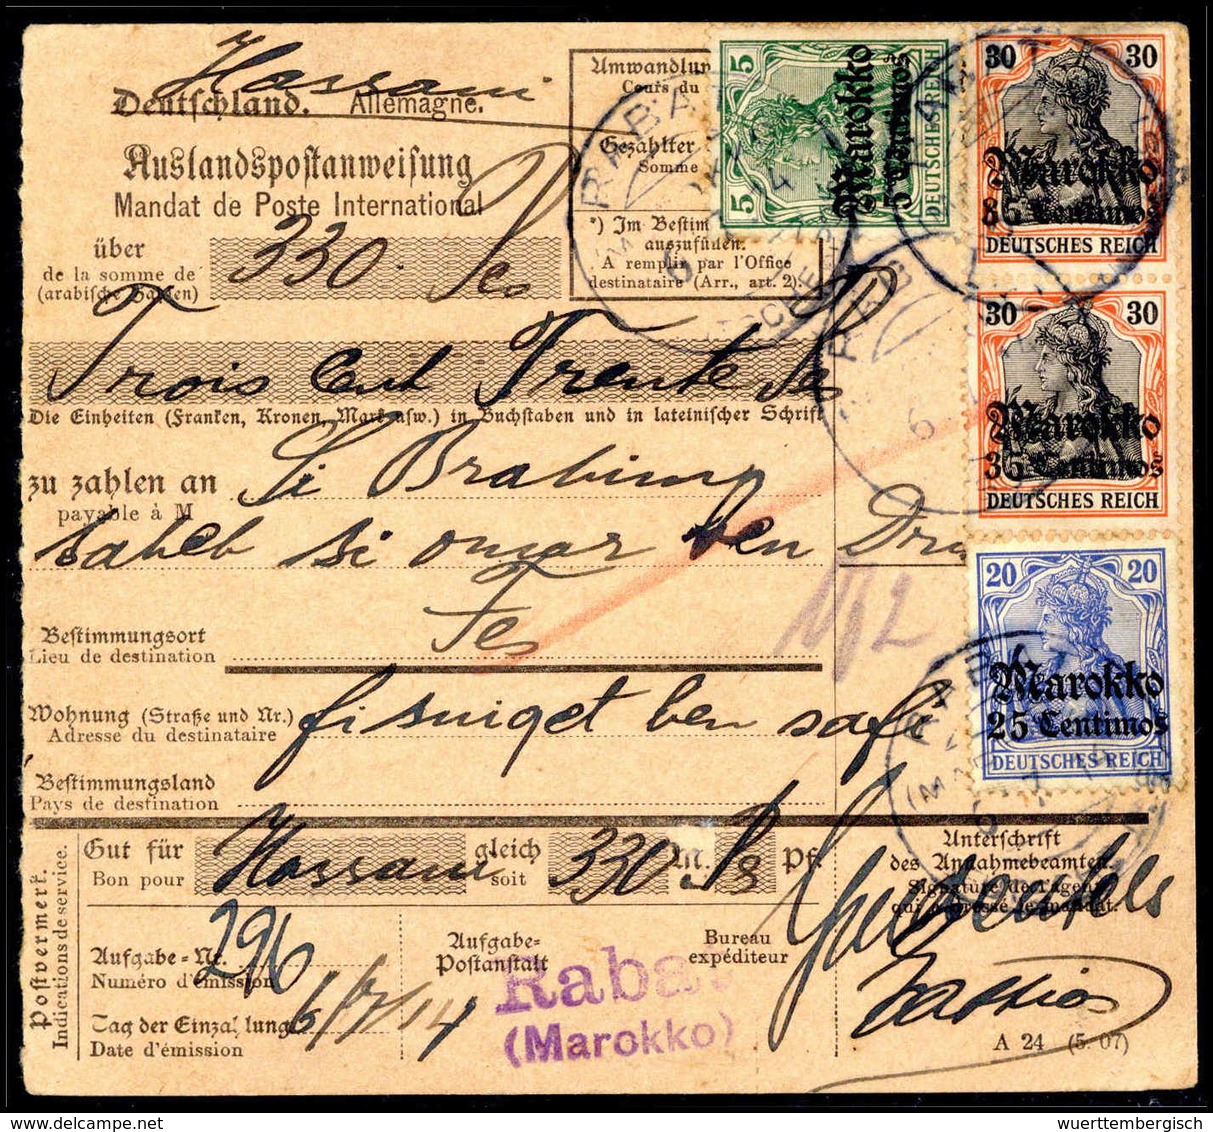 Hassani
Deutschland. Allemagne.
Auslandspostanweisung
Mandat de Poste International
über
de la somme de
(arabische Zahlen)
330. Ps
Umwandlun
Cours du
Gezahlter
Somme
*) Im Bestim
auszufüllen.
A remplir par l'Office
destinataire (Arr., art. 2).
Trois cent Trente Ps
Die Einheiten (Franken, Kronen, Mark usw.) in Buchstaben und in lateinischer Schrift
zu zahlen an
payable à M
Si Brahim
saheb si omar ben
Fes
Bestimmungsort
Lieu de destination
Wohnung (Straße und Nr.)
Adresse du destinataire
ben safi
Bestimmungsland
Pays de destination
Postvermerk.
Indications de service.
Gut für
Bon pour
Hassani
gleich
soit
330
M.
Ps
Pf.
Unterschrift
des Annahmebeamten.
Signature de l'agent
qui a dressé le mandat.
Aufgabe-Nr.
Numéro d'émission
296
Aufgabe-
Postanstalt
Bureau
expéditeur
Rabat
(Marokko)
Tag der Einzahlung
Date d'émission
6/7/14
A 24 (5. 07)
5 5
DEUTSCHES REICH
Marokko
5 Centimos
30 30
Marokko
35 Centimos
DEUTSCHES REICH
30 30
Marokko
35 Centimos
DEUTSCHES REICH
20 20
Marokko
25 Centimos
DEUTSCHES REICH
RABAT
wuerttembergisch